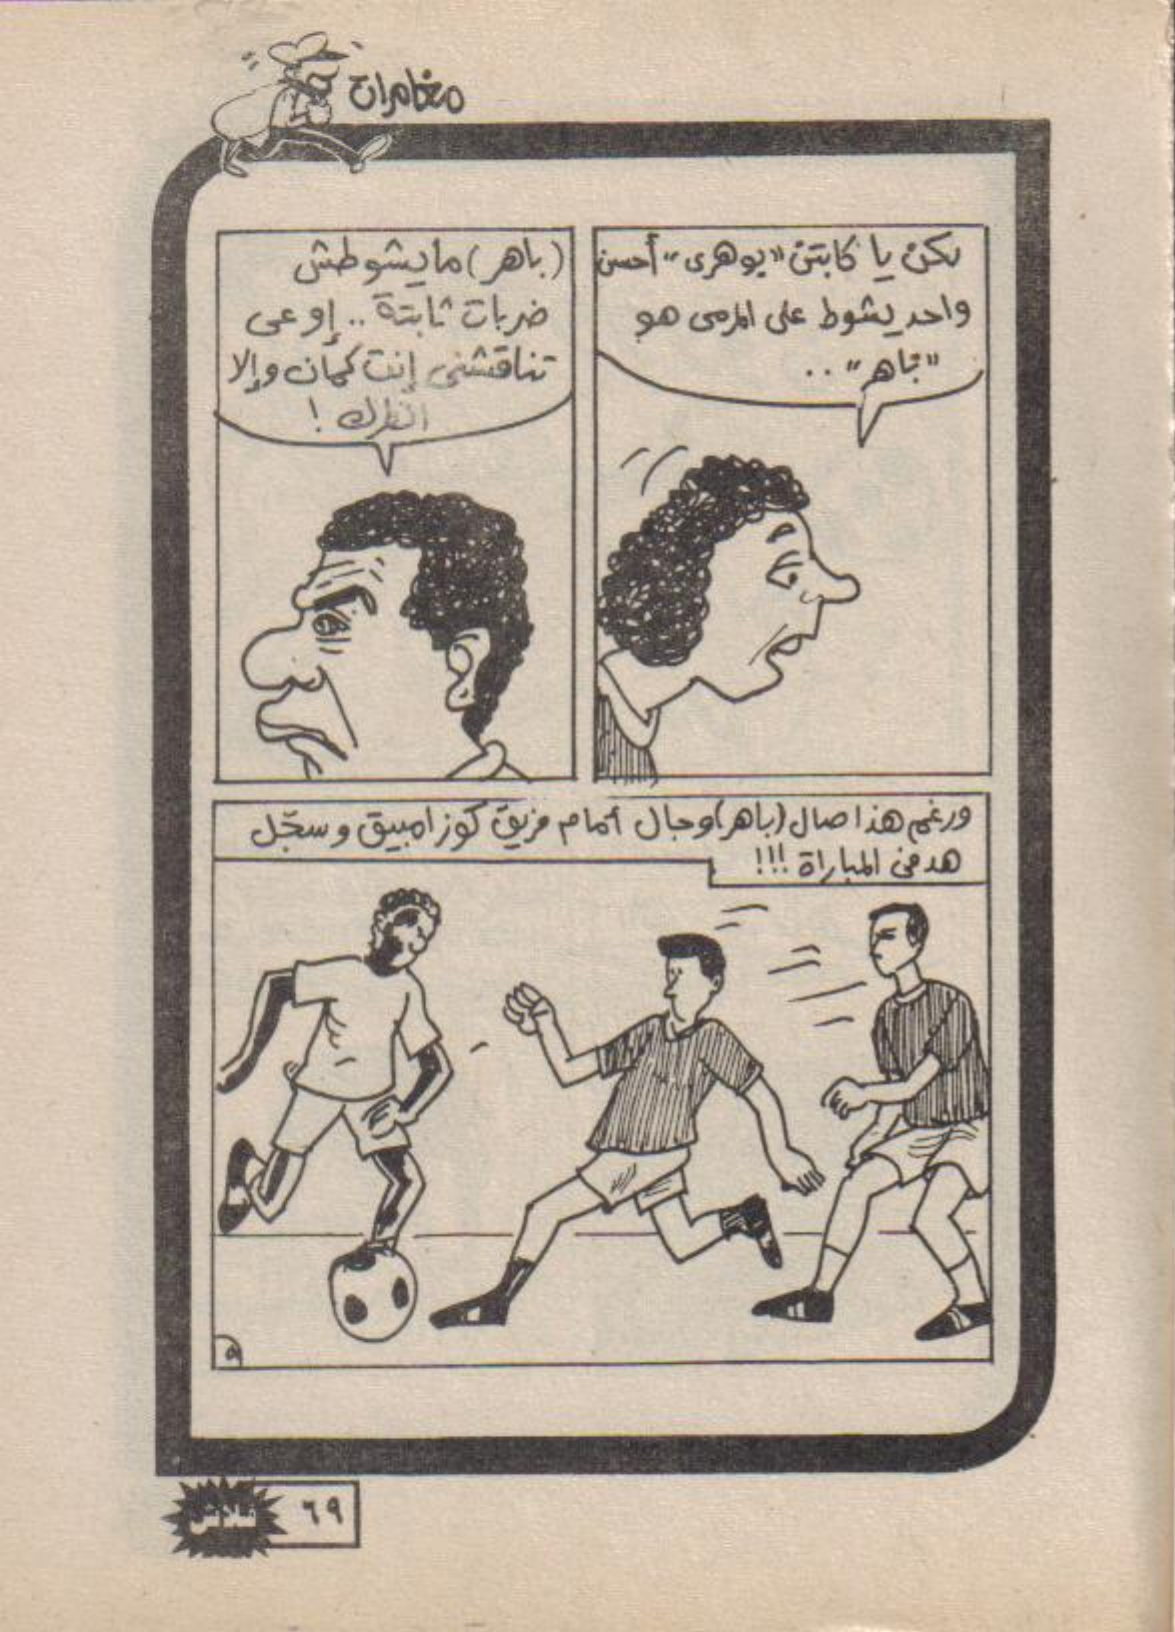 مغامرات
لكن يا كابتن "بوهرى" أحسن
واحد يشوط على المرمى هو
"باهر" ..
(باهر) مايشوطش
ضربات ثابتة .. إوعى
تناقشنى إنت كمان وإلا
اطردك !
ورغم هذا صال (باهر) وجال أمام فريق كوزامبيق وسجّل
هدفى المباراة !!!
٩
٦٩
فلاش